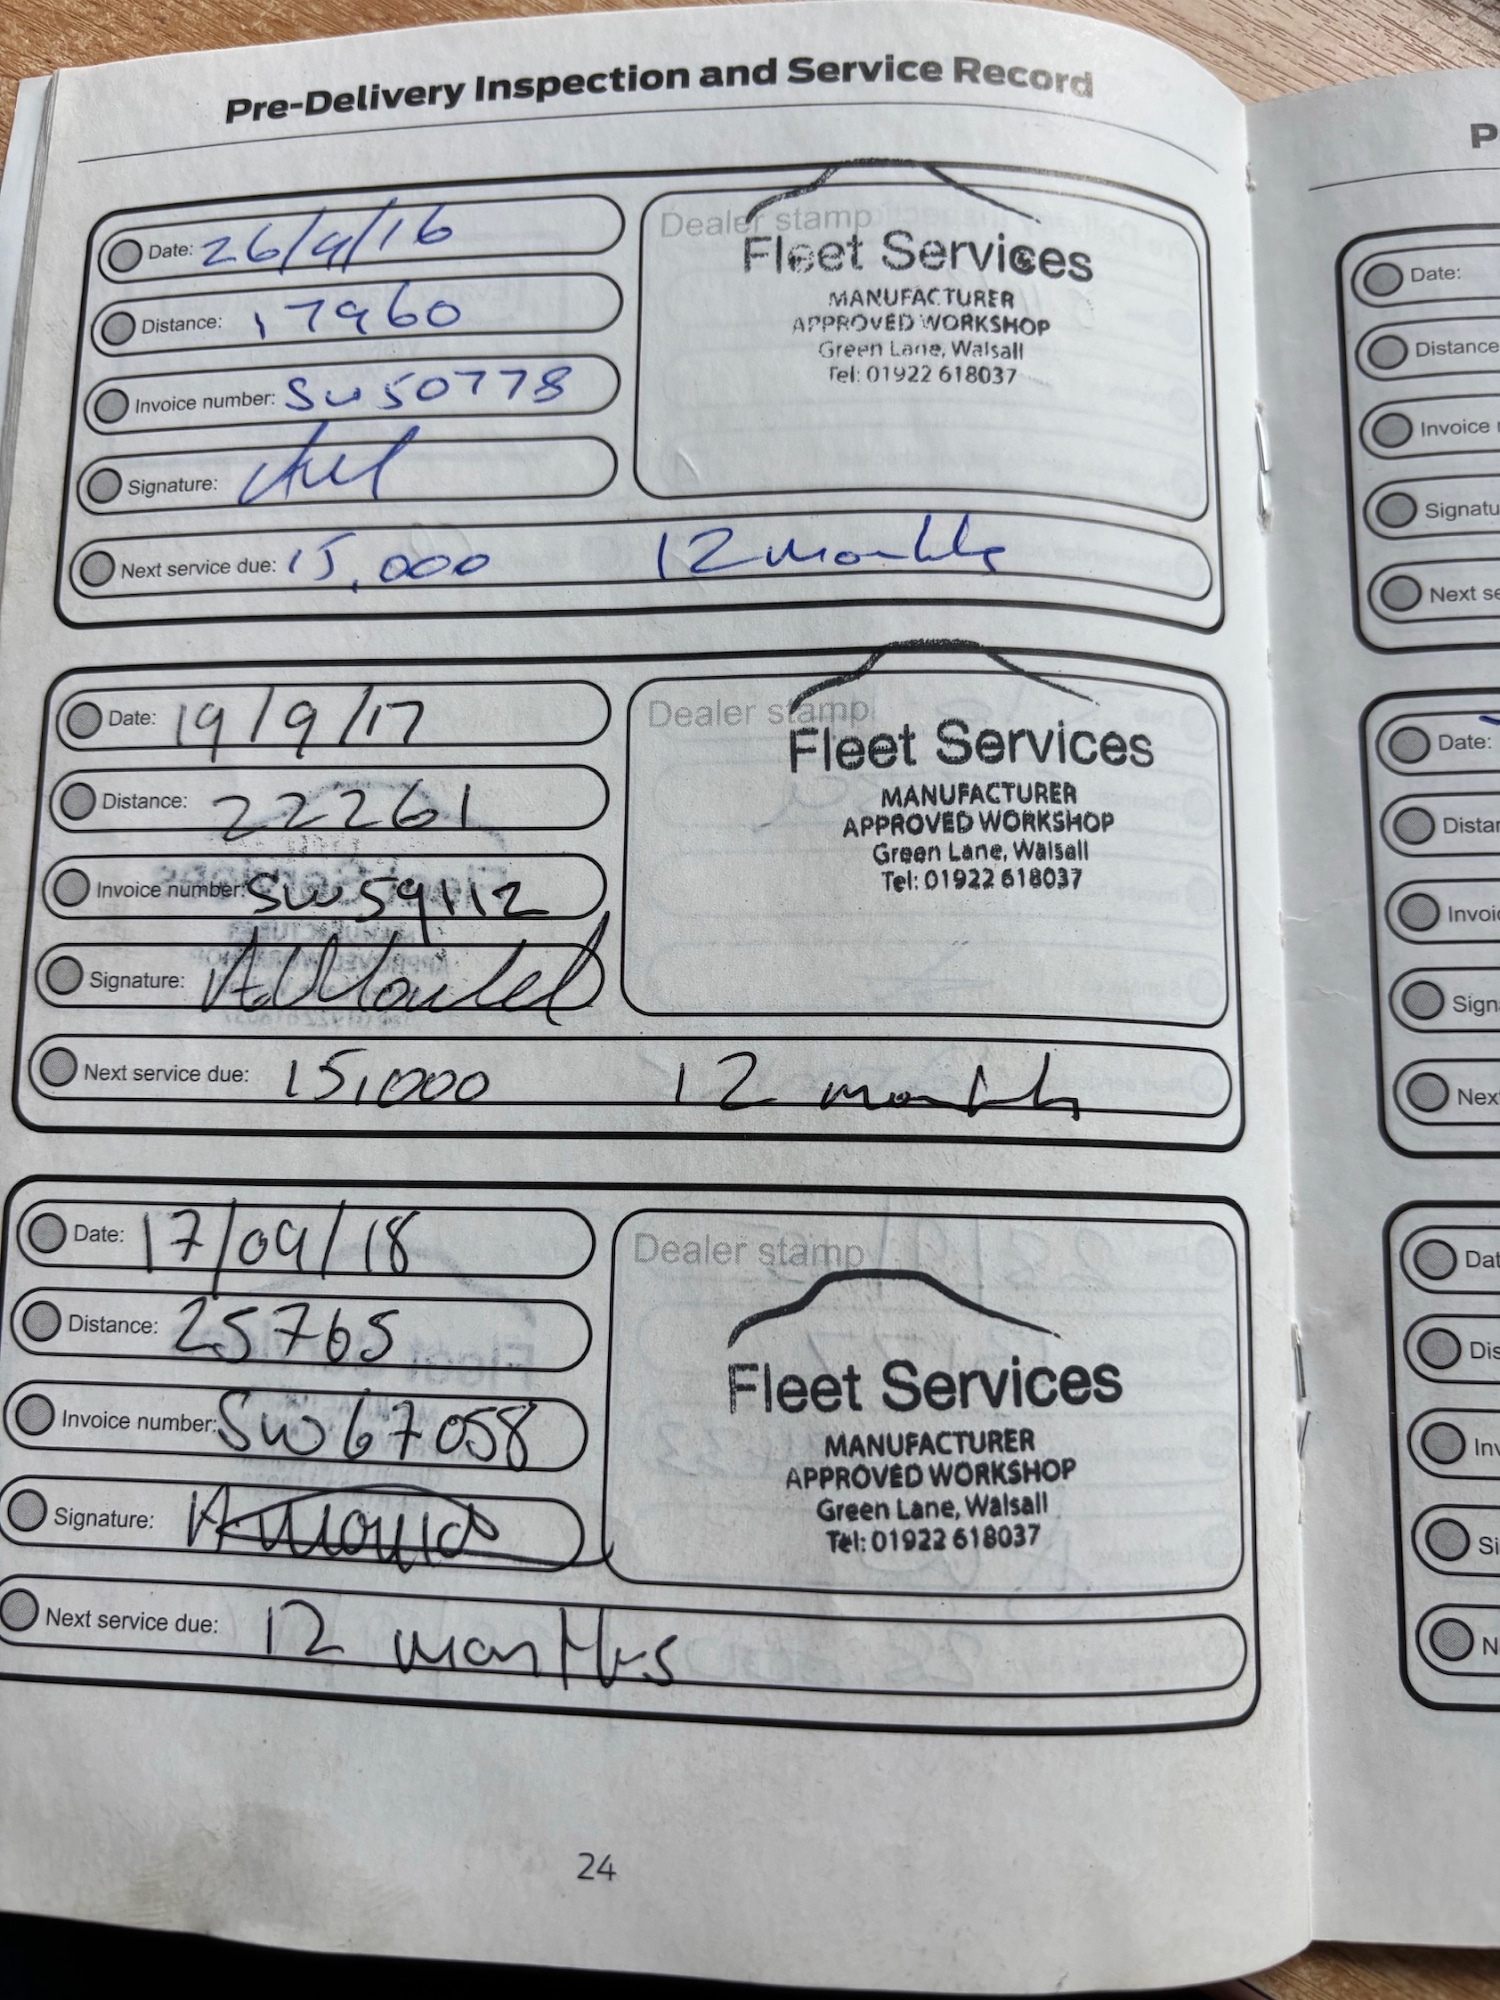 Pre-Delivery Inspection and Service Record
Date: 26/9/16
Distance: 17960
Invoice number: SW50778
Signature:
Next service due: 15,000 12 months
Dealer stamp
Fleet Services
MANUFACTURER
APPROVED WORKSHOP
Green Lane, Walsall
Tel: 01922 618037
Date: 19/9/17
Distance: 22261
Invoice number: SW59112
Signature:
Next service due: 15,000 12 months
Dealer stamp
Fleet Services
MANUFACTURER
APPROVED WORKSHOP
Green Lane, Walsall
Tel: 01922 618037
Date: 17/09/18
Distance: 25765
Invoice number: SW67058
Signature:
Next service due: 12 months
Dealer stamp
Fleet Services
MANUFACTURER
APPROVED WORKSHOP
Green Lane, Walsall
Tel: 01922 618037
24
P
Date:
Distance
Invoice
Signatu
Next se
Date:
Distan
Invoic
Sign
Nex
Dat
Dis
Inv
Si
N